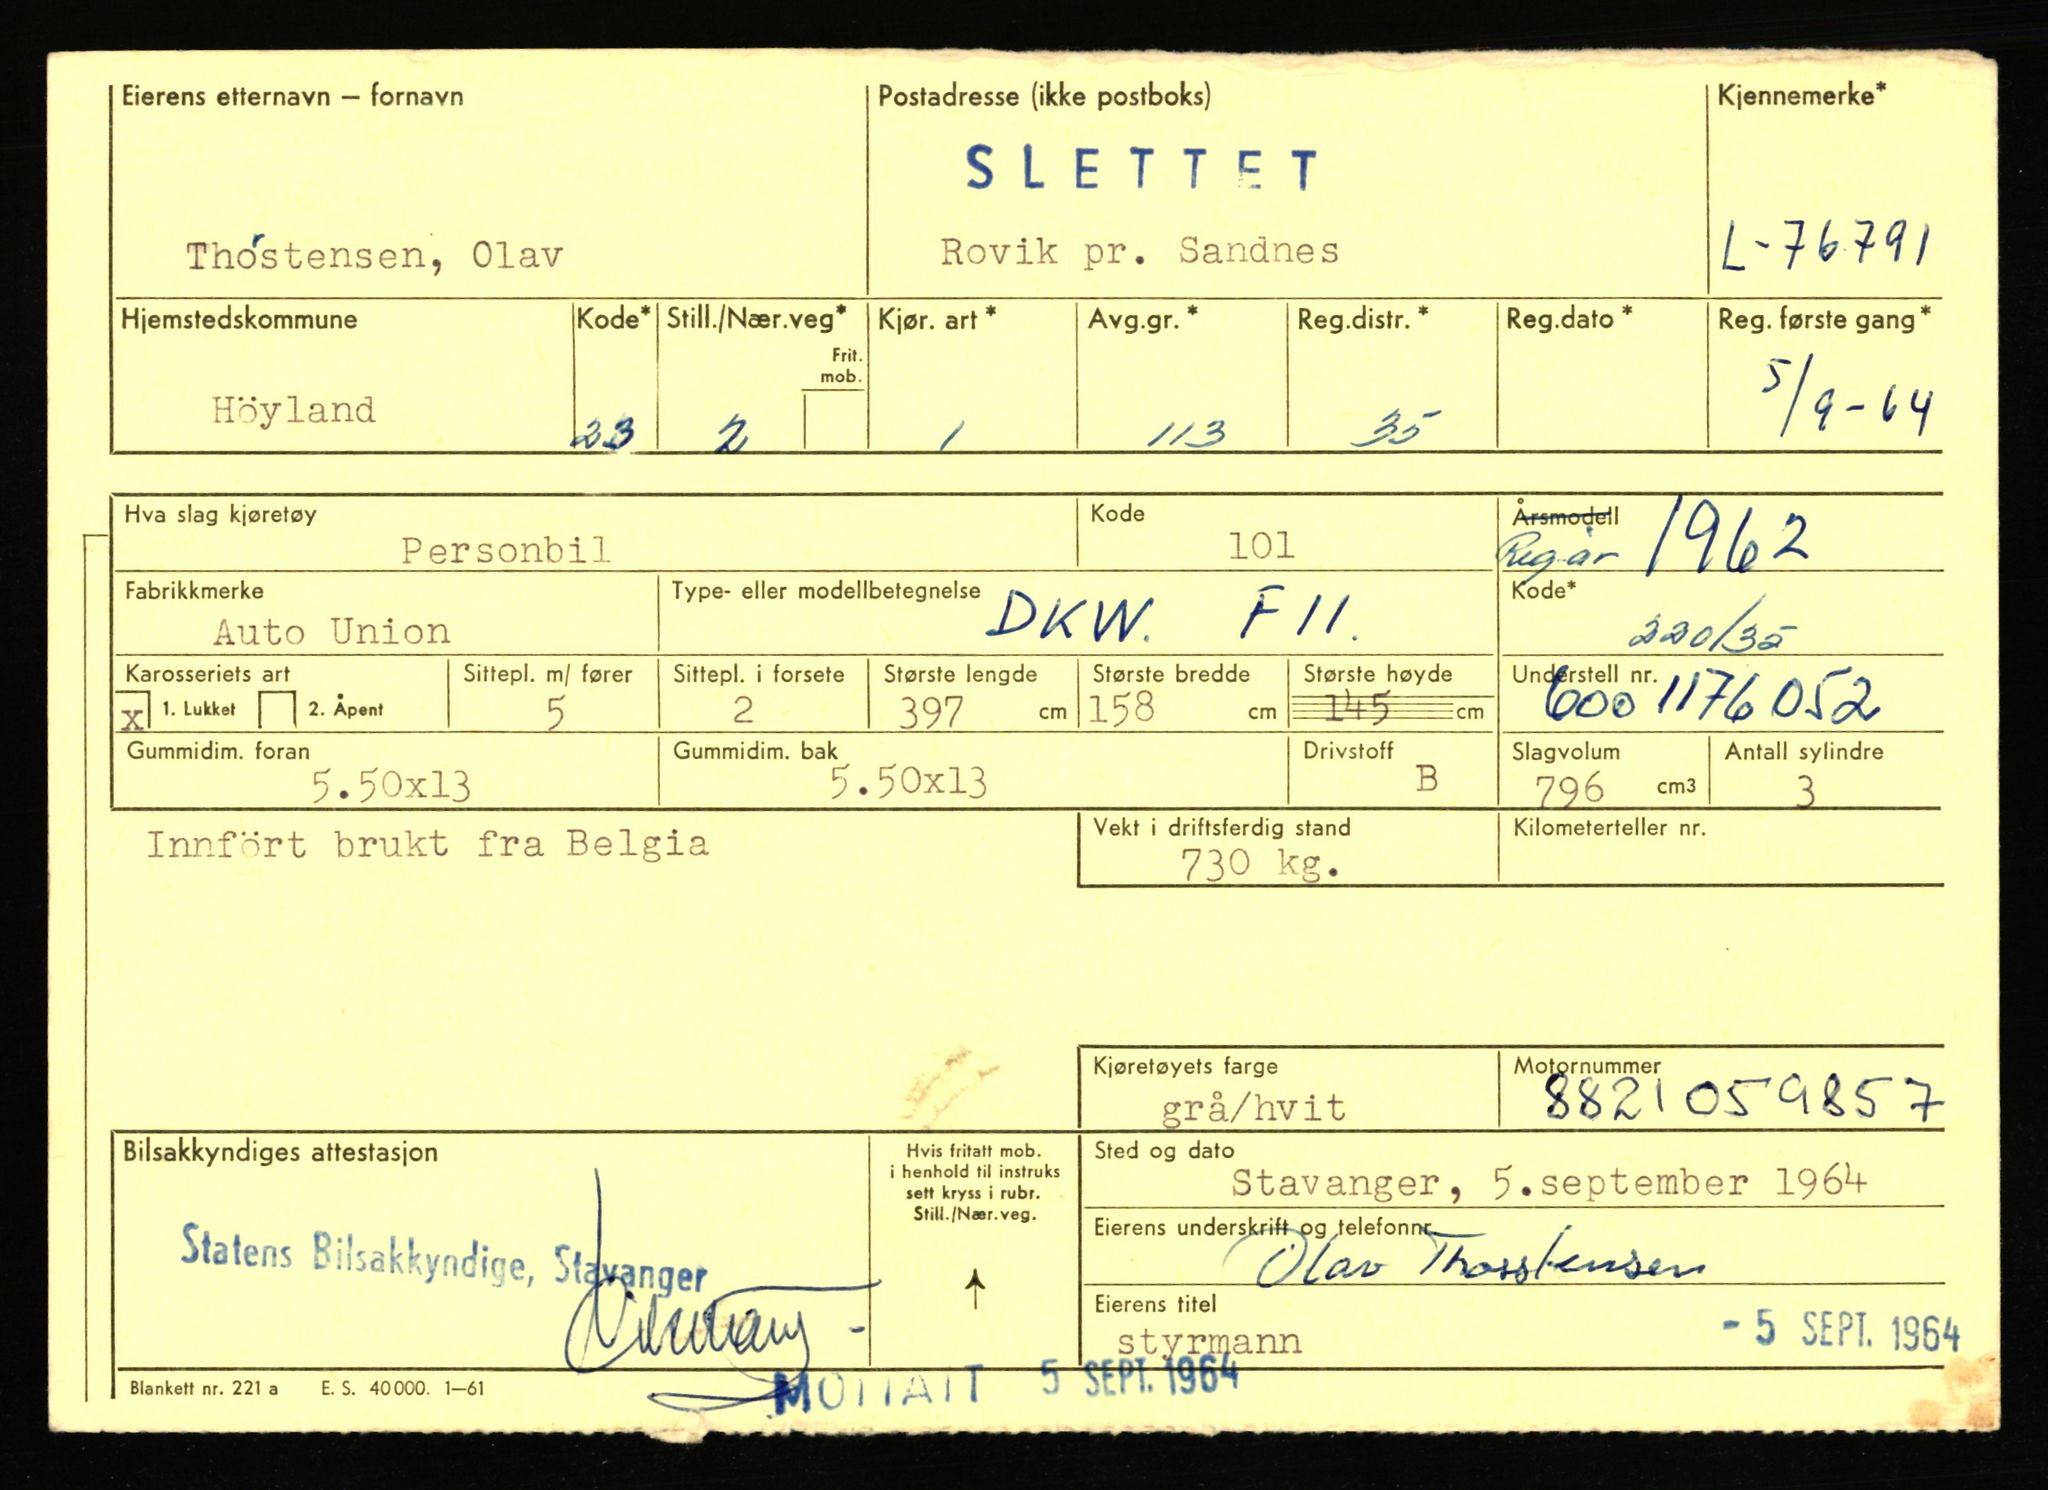 Eierens etternavn – fornavn
Postadresse (ikke postboks)
Kjennemerke*
SLETTET
Thorstensen, Olav
Rovik pr. Sandnes
L-76791
Hjemstedskommune
Kode*
Still./Nær.veg*
Frit. mob.
Kjør. art *
Avg.gr. *
Reg.distr. *
Reg.dato *
Reg. første gang*
Höyland
23
2
1
113
35
5/9-64
Hva slag kjøretøy
Personbil
Kode
101
Årsmodell
Reg.år 1962
Fabrikkmerke
Auto Union
Type- eller modellbetegnelse
DKW. F 11.
Kode*
220/35
Karosseriets art
x 1. Lukket 2. Åpent
Sittepl. m/ fører
5
Sittepl. i forsete
2
Største lengde
397 cm
Største bredde
158 cm
Største høyde
145 cm
Understell nr.
6001176052
Gummidim. foran
5.50x13
Gummidim. bak
5.50x13
Drivstoff
B
Slagvolum
796 cm3
Antall sylindre
3
Innfört brukt fra Belgia
Vekt i driftsferdig stand
730 kg.
Kilometerteller nr.
Kjøretøyets farge
grå/hvit
Motornummer
8821059857
Bilsakkyndiges attestasjon
Statens Bilsakkyndige, Stavanger
Hvis fritatt mob.
i henhold til instruks
sett kryss i rubr.
Still./Nær.veg.
Sted og dato
Stavanger, 5.september 1964
Eierens underskrift og telefonnr.
Olav Thorstensen
Eierens titel
styrmann
- 5 SEPT. 1964
MOTTATT 5 SEPT. 1964
Blankett nr. 221 a E. S. 40000. 1–61